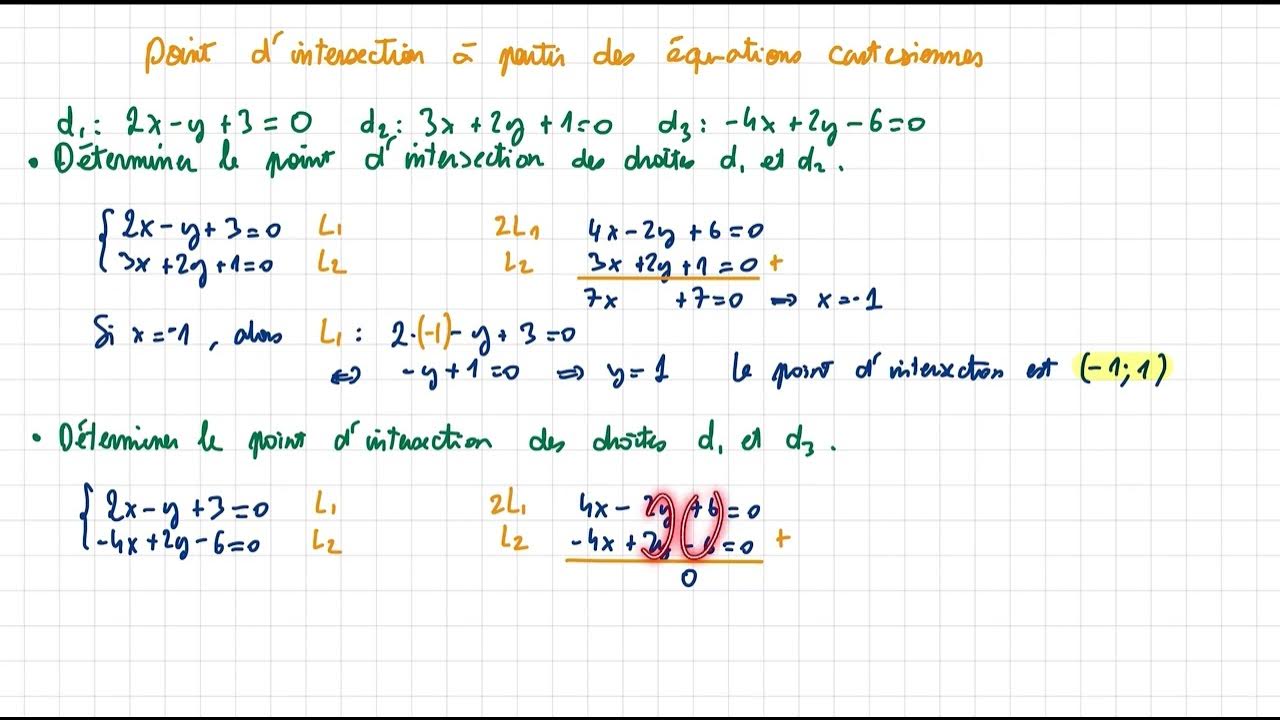 Point d'intersection à partir des équations cartésiennes
d₁: 2x-y+3=0 d₂: 3x+2y+1=0 d₃: -4x+2y-6=0
• Déterminer le point d'intersection des droites d₁ et d₂.
{ 2x-y+3=0 L₁ 2L₁ 4x-2y+6=0
3x+2y+1=0 L₂ L₂ 3x+2y+1=0 +
7x +7=0 ⇒ x=-1
Si x=-1, alors L₁: 2·(-1)-y+3=0
⇔ -y+1=0 ⇒ y=1 Le point d'intersection est (-1;1)
• Déterminer le point d'intersection des droites d₁ et d₃.
{ 2x-y+3=0 L₁ 2L₁ 4x-2y+6=0
-4x+2y-6=0 L₂ L₂ -4x+2y-6=0 +
0